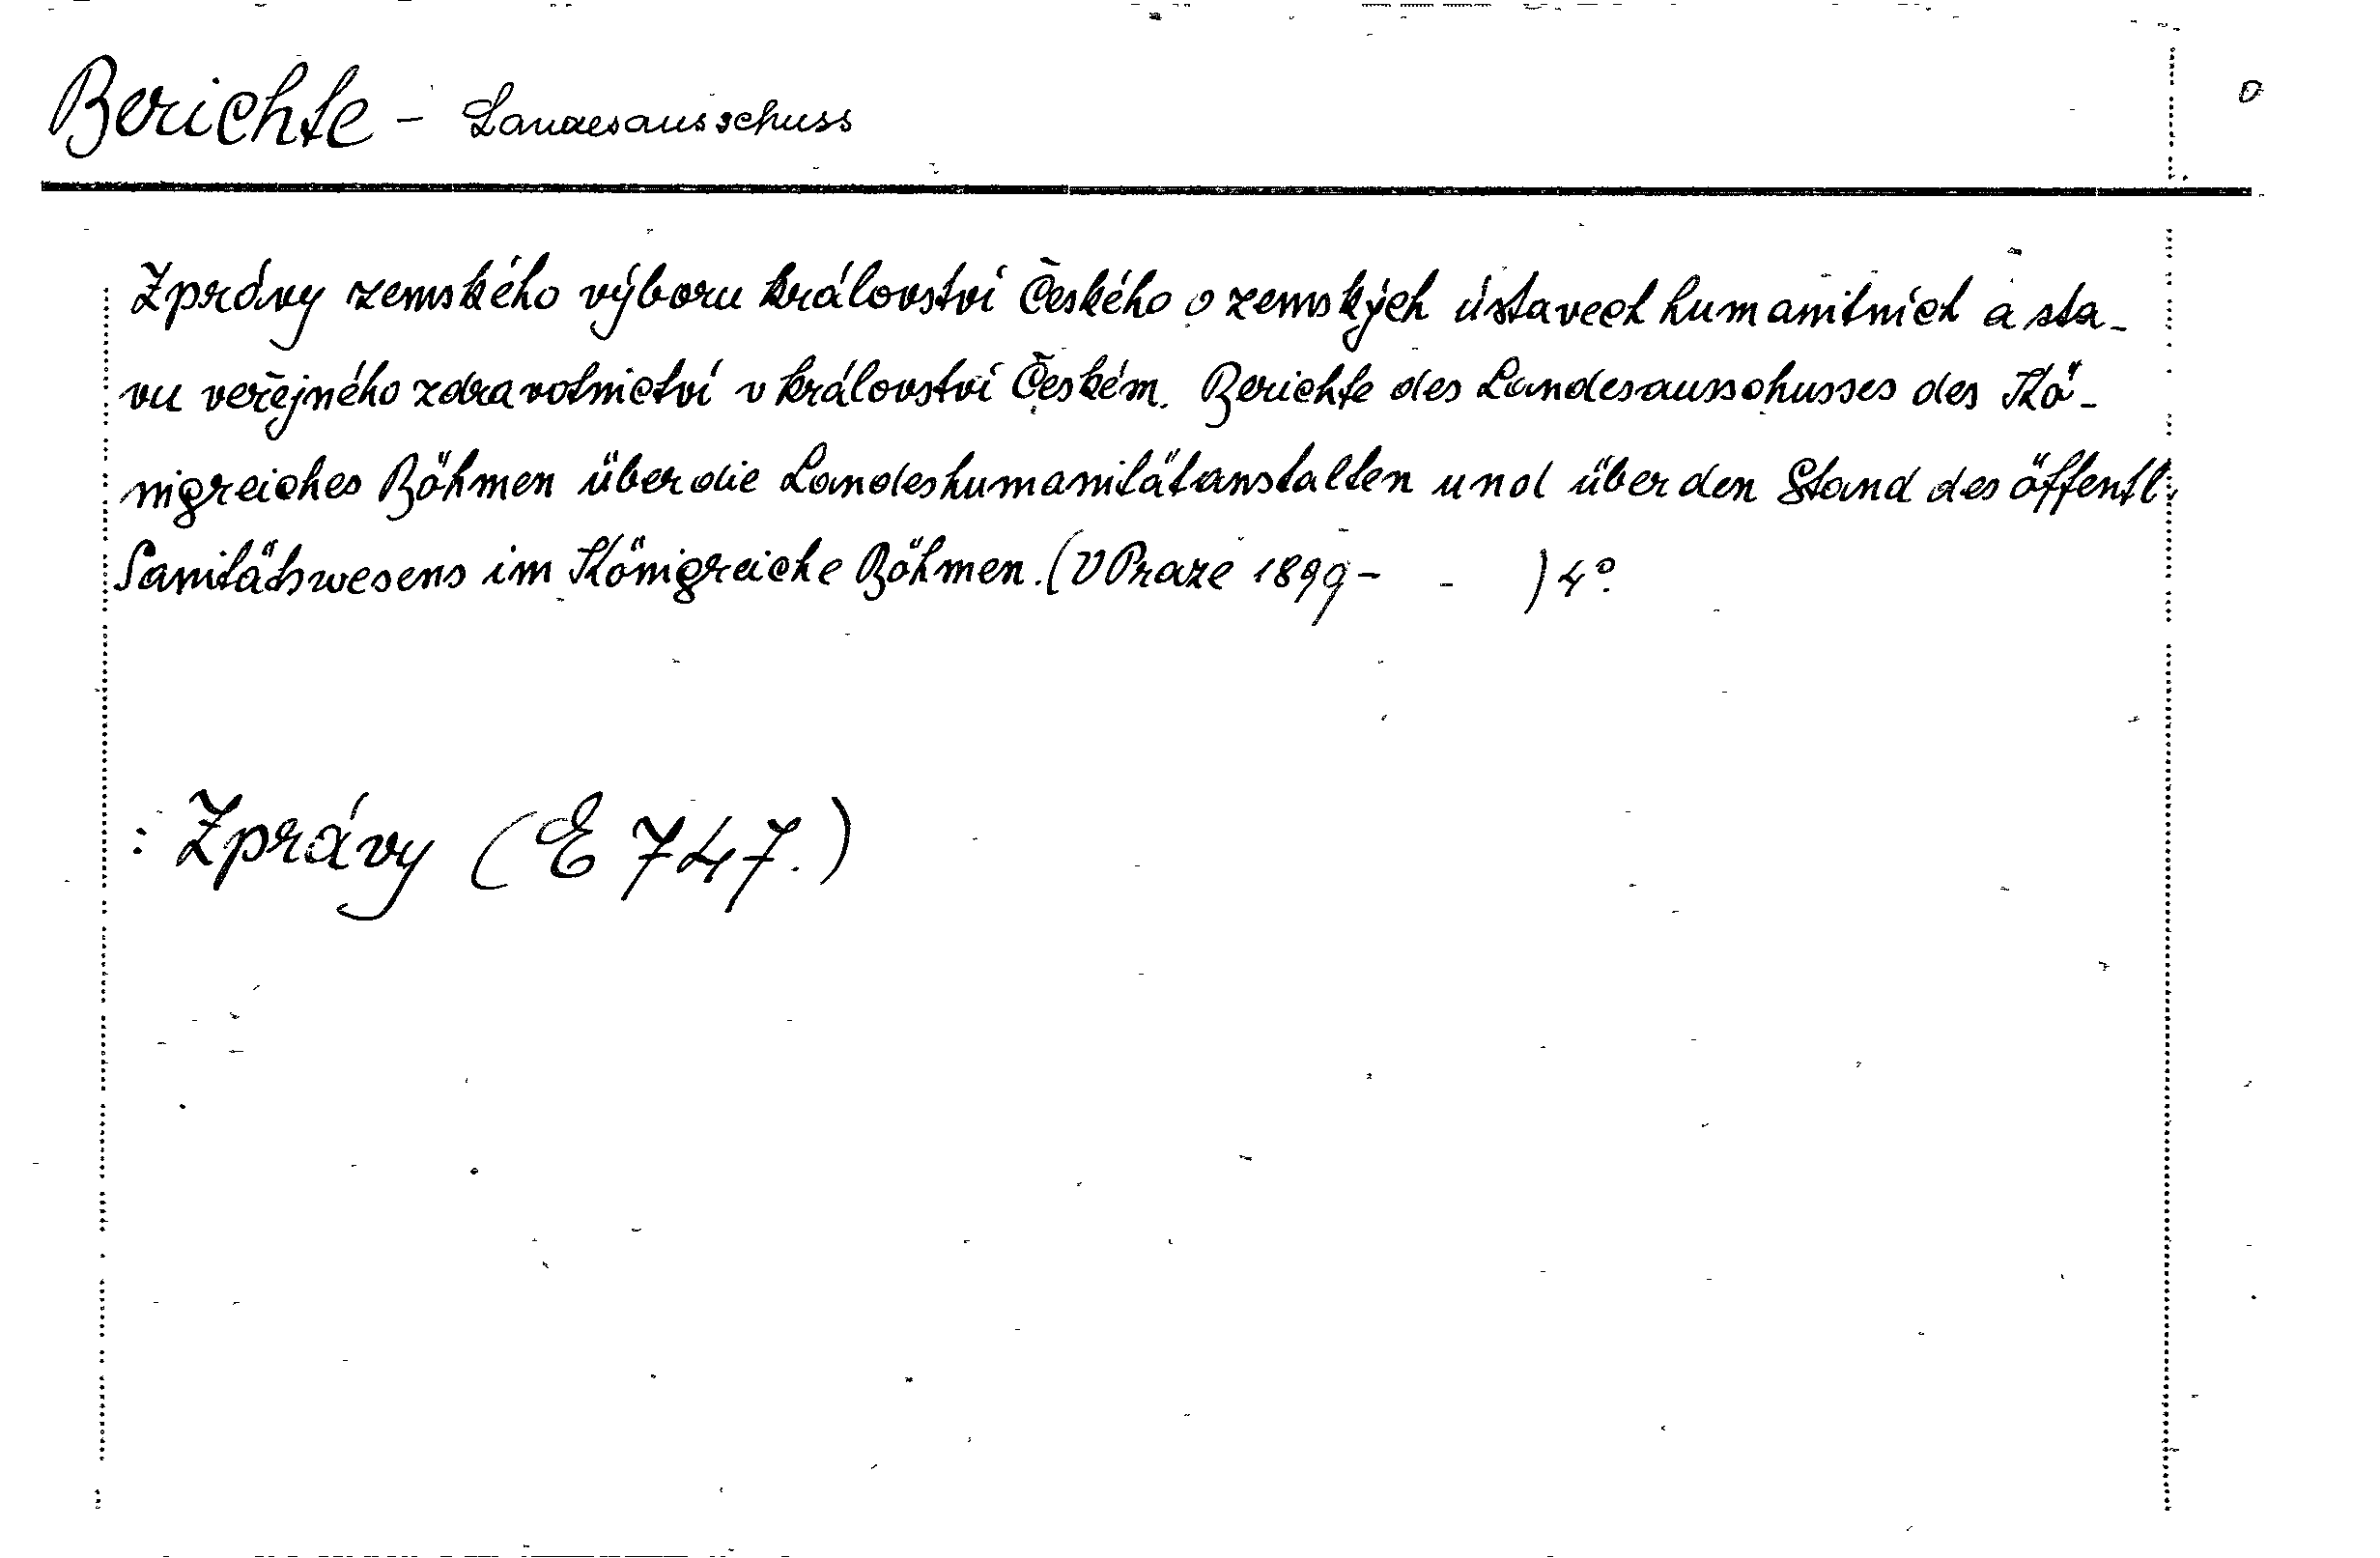 Berichte - Landesausschuss
Zprávy zemského výboru království Českého o zemských ústavech humanitních a sta-
vu veřejného zdravotnictví v království Českém. Berichte des Landesausschusses des Kö-
nigreiches Böhmen über die Landeshumanitätanstalten und über den Stand des öffentl.
Sanitätswesens im Königreiche Böhmen. (V Praze 1899- - ) 4°.
: Zprávy (E 747.)